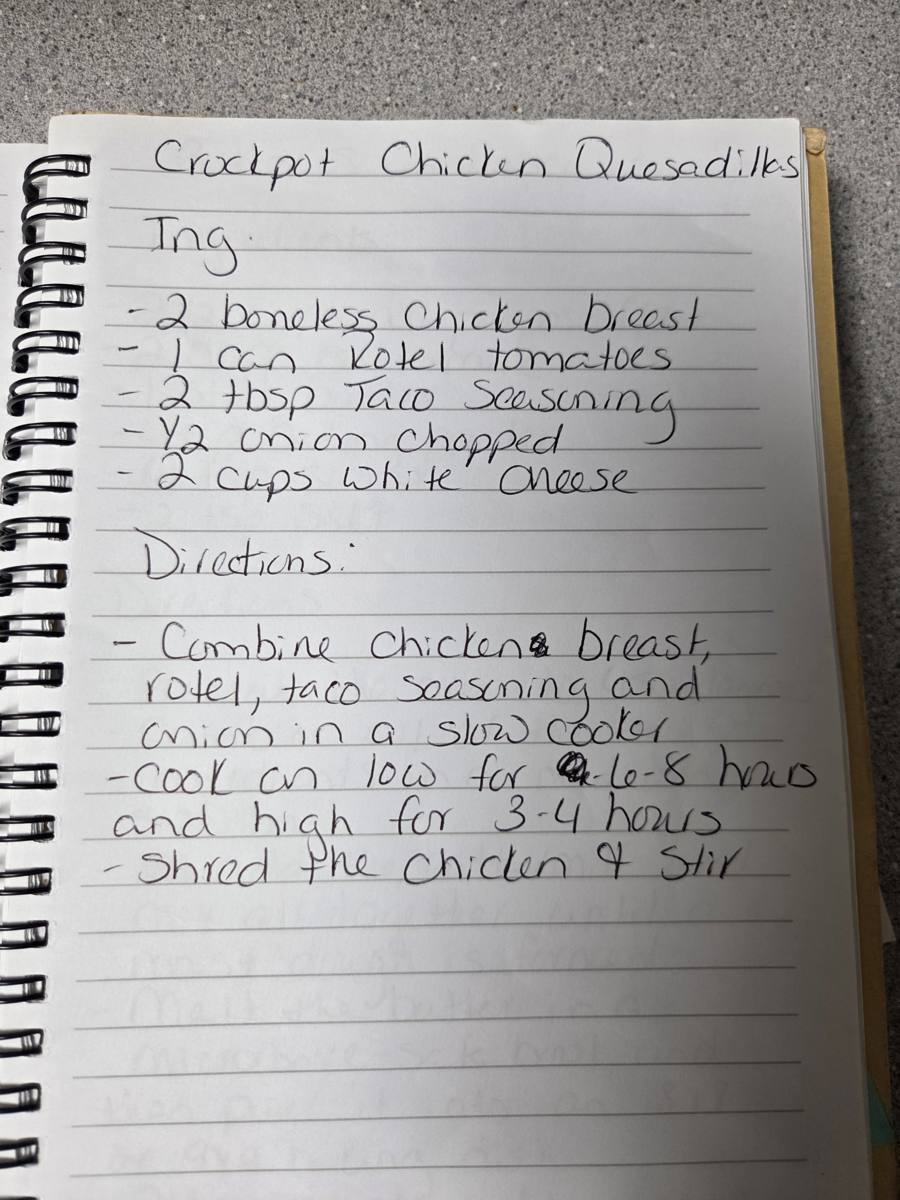 Crockpot Chicken Quesadillas
Ing.
- 2 boneless Chicken breast
- 1 can Rotel tomatoes
- 2 tbsp Taco Seasoning
- 1/2 onion chopped
- 2 cups white cheese
Directions:
- Combine chicken breast,
rotel, taco seasoning and
onion in a slow cooker
- Cook on low for 6-8 hours
and high for 3-4 hours
- Shred the chicken & stir